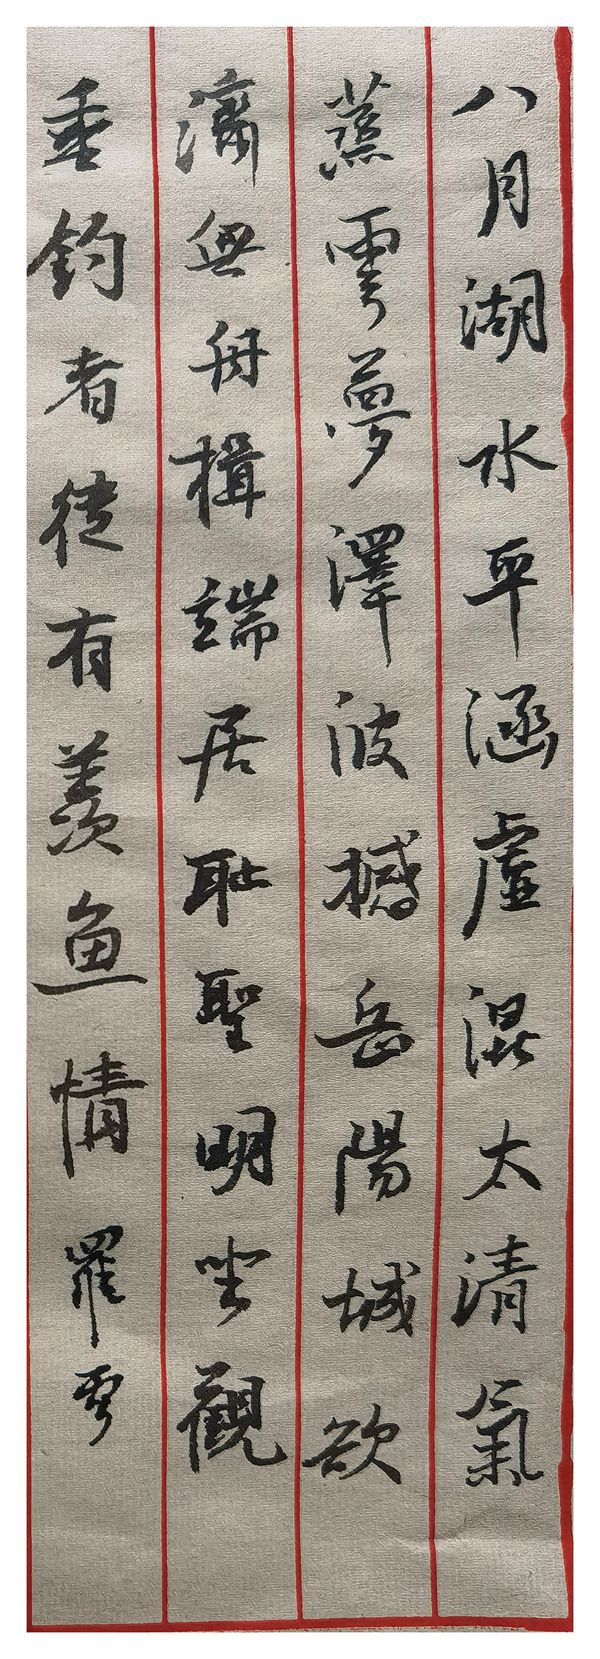 八月湖水平涵虛混太清氣
蒸雲夢澤波撼岳陽城欲
濟無舟楫端居耻聖明坐觀
垂釣者徒有羨魚情 羅雩